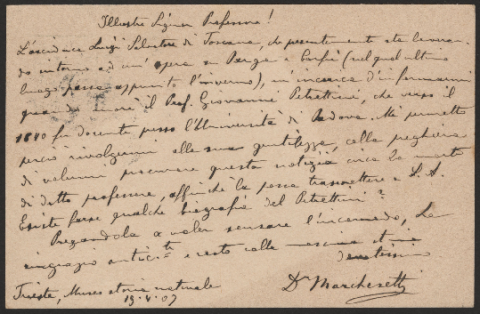 Illustre Signor Professore!
L'arciduca Luigi Salvatore di Toscana, che presentemente sta lavoran-
do intorno ad un'opera su Parga e Corfù (nel qual ultimo
luogo passò appunto l'inverno), m'incarica di informarmi
quando morì il Prof. Giovanni Petrettini, che verso il
1840 fu docente presso l'Università di Padova. Mi permetto
perciò rivolgermi alla sua gentilezza, colla preghiera
di volermi procurare questa notizia circa la morte
di detto professore, affinchè la possa trasmettere a S. A.
Esiste forse qualche biografia del Petrettini?
Pregandola a voler scusare l'incomodo, La
ringrazio anticipte e resto colla massima stima
devotissimo
Trieste, Museo storia naturale
19.4.07
Dr Marchesetti